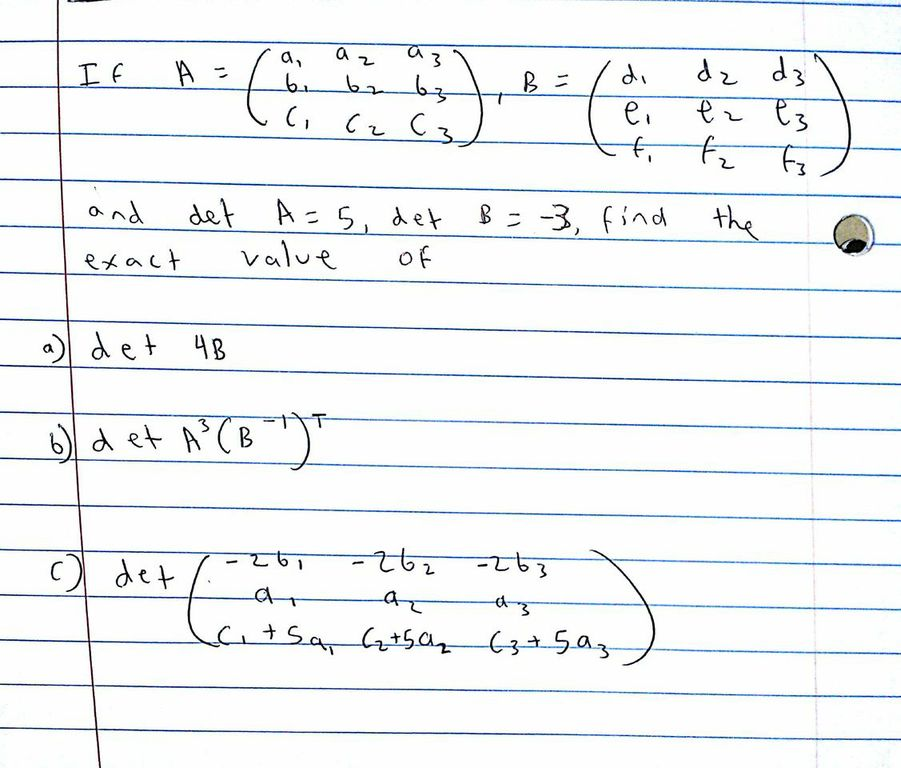 If A = ( a₁ a₂ a₃ ), B = ( d₁ d₂ d₃ )
b₁ b₂ b₃ e₁ e₂ e₃
c₁ c₂ c₃ f₁ f₂ f₃
and det A = 5, det B = -3, find the
exact value of
a) det 4B
b) det A³(B⁻¹)ᵀ
c) det ( -2b₁ -2b₂ -2b₃ )
a₁ a₂ a₃
c₁ + 5a₁ c₂+5a₂ c₃ + 5a₃